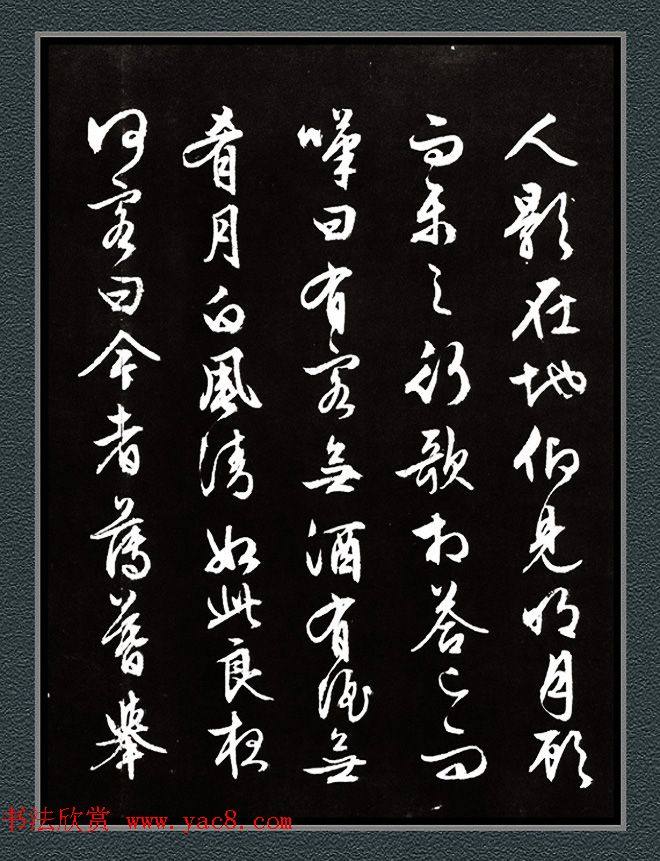 人影在地仰見明月顧
而樂之行歌相答已而
嘆曰有客無酒有酒無
肴月白風清如此良夜
何客曰今者薄暮舉
书法欣赏 www.yac8.com